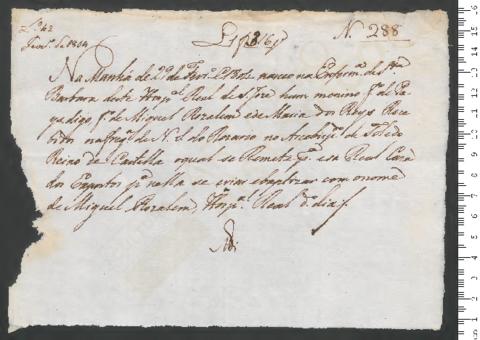 Nº 288
Na Manhã de 29 de Fevr.º de 1804 nasceo na Enferm.ª de S.ta
Barbara deste Hosp.al Real de S. José hum menino f.º
digo f.º de Miguel Rozalem e de Maria dos Reys Rece
bidos na freg.ª de N. S. do Rozario no Arcebisp.º de Toledo
Reino de Castella o qual se Remete p.ª esa Real Caza
dos Expostos p.ª nella se criar e baptizar com o nome
de Miguel Rozalem, Hosp.al Real d.º dia